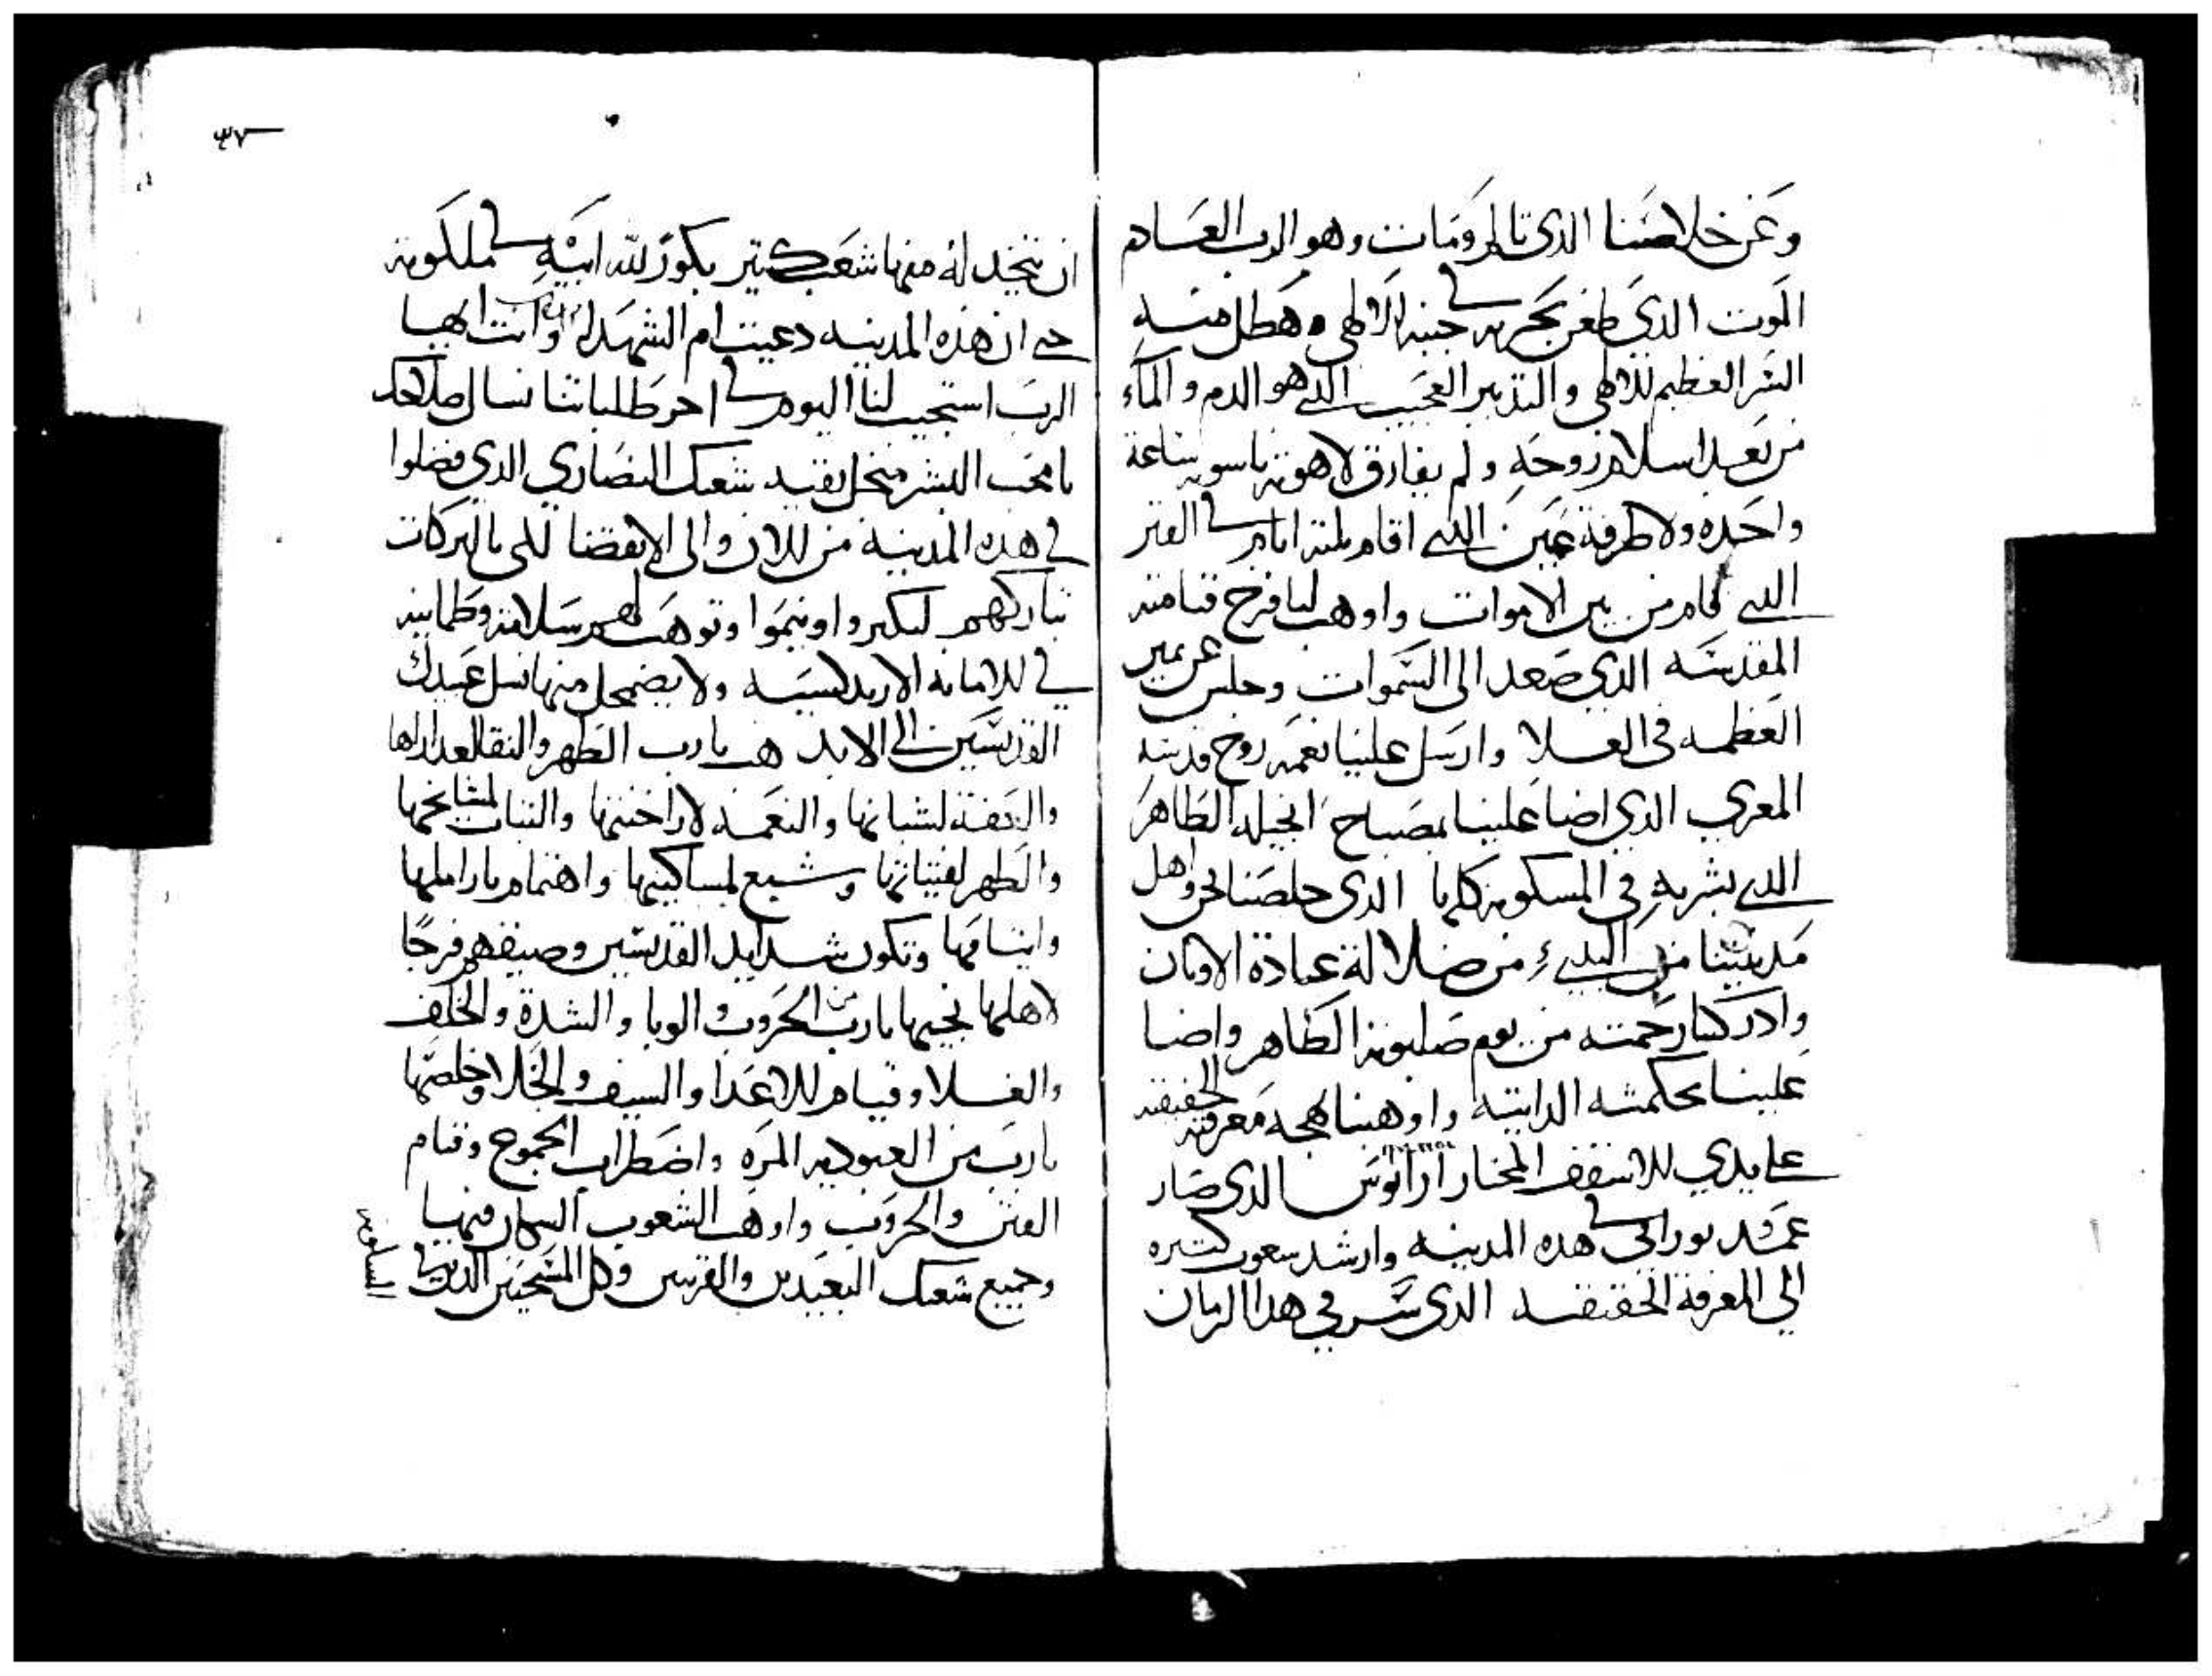 وعن خلاصنا الذي تالم ومات وهو الرب العادم
الموت الذي طعن بحربه في جنبه الالهي وهطل منه
السر العظيم الالهي والتدبير العجيب الذي هو الدم والمآء
من بعد اسلام روحه ولم يفارق لاهوته ناسوته ساعة
واحده ولا طرفة عين الذي اقام ثلثة ايام في القبر
الذي قام من بين الاموات واوهب لنا فرح قيامته
المقدسه الذي صعد الى السموات وجلس عن يمين
العظمه في العلا وارسل علينا نعمه روح قدسه
المعزي الذي اضا علينا بمصباح انجيله الطاهر
الذي بشر به في المسكونه كلها الذي خلصنا نحن واهل
مدينتنا من البدي من ضلالة عبادة الاوثان
وادركنا رحمته من يوم صلبوته الطاهر واضا
علينا بحكمته الذاتيه واوهبنا بهجه معرفته الحقيقيه
على يدي الاسقف المختار الذي صار
عمود نوراني في هذه المدينه وارشد شعوب كثيره
الى المعرفة الحقيقيه الذي سر في هذا الزمان
٣٧
ان يتخد له منها شعب كتير يكون لله ابيه في ملكوته
حتى ان هذه المدينه دعيت ام الشهدا وانت ايها
الرب استجيب لنا اليوم في اخر طلباتنا نسال صلاحك
يا محب البشر من اجل بقية شعبك النصاري الذي فضلوا
في هذه المدينة من الان والى الانقضا لكي بالبركات
تباركهم ليكبروا وينموا وتوهب لهم سلامة وطمانينه
في الامانه الارتدكسيه ولا يضمحل منها نسل عبيدك
القديسين الى الابد هب يارب الطهر والنقا لعداراها
والعفة لشبانها والنعمه لاراخنتها والثبات لمشايخها
والطهر لفتيانها وشبع لمساكينها واهتمام باراملها
وايتامها وتكون شدايد القديسين وضيقهم فرجًا
لاهلها نجيها يارب من الحروب والوبا والشدة والخلف
والغلا وقيام الاعدا والسيف والجلا وخلصها
يارب من العبوديه المره واضطراب الجموع وقيام
الفتن والحروب واوهب الشعوب السكان فيها
وجميع شعبك البعيدين والقريبين وكل المسيحيين الذين في
المسكونه